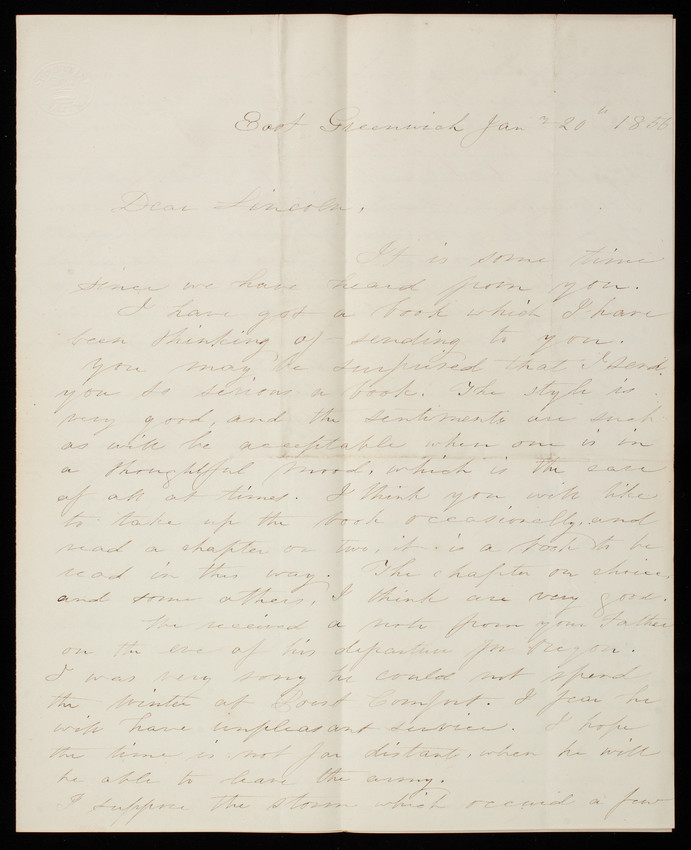 East Greenwich Jany 20th 1856
Dear Lincoln,
It is some time
since we have heard from you.
I have got a book which I have
been thinking of sending to you.
You may be surprised that I send
you so serious a book. The style is
very good, and the sentiments are such
as will be acceptable when one is in
a thoughtful mood, which is the case
of all at times. I think you will like
to take up the book occasionally, and
read a chapter or two, it is a book to be
read in this way. The chapter on choice,
and some others, I think are very good.
We received a note from your Father
on the eve of his departure for Oregon.
I was very sorry he could not spend
the winter at Point Comfort. I fear he
will have unpleasant service. I hope
the time is not far distant, when he will
be able to leave the army.
I suppose the storm which occurred a few